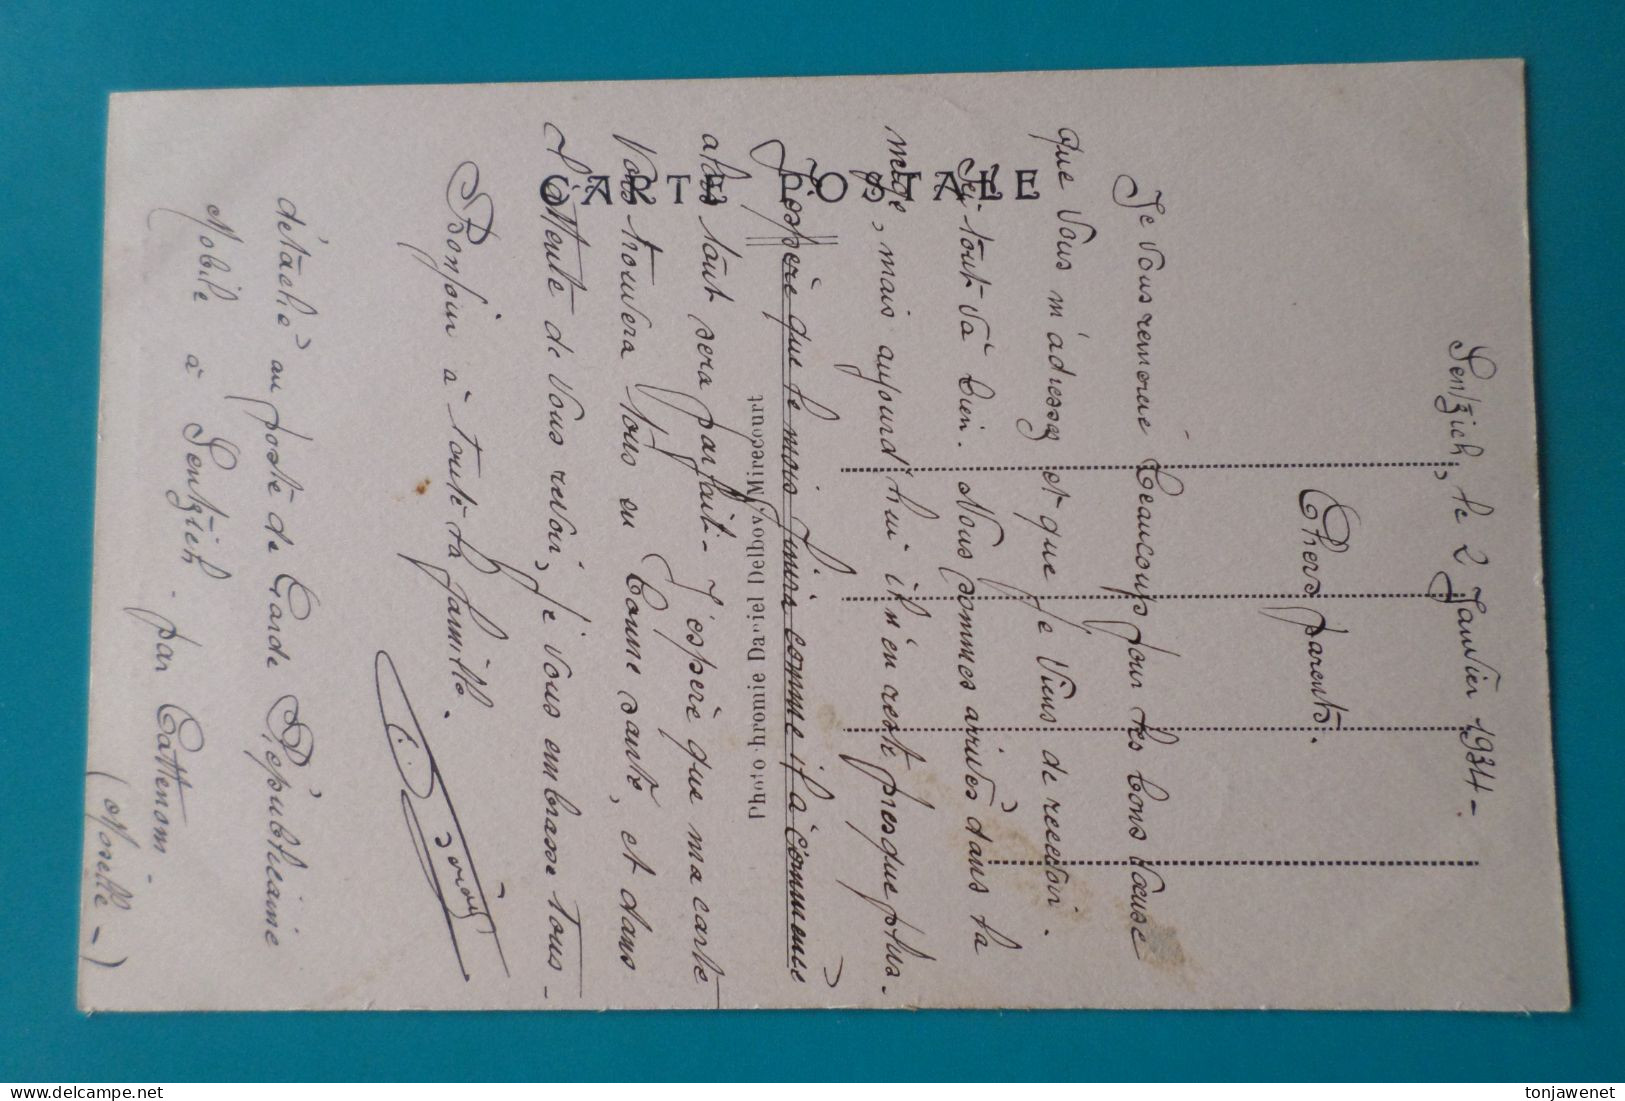 CARTE POSTALE
Photochromie Daniel Delboy, Mirecourt
Sentzich, le 2 Janvier 1934-
Chers parents.
Je vous remercie beaucoup pour les bons vœux
que vous m'adressez et que je viens de recevoir.
Ici tout và bien. Nous sommes arrivés dans la
neige, mais aujourd'hui il n'en reste presque plus.
J'espère que le mois finira comme il a commencé
alors tout sera parfait - J'espère que ma carte
vous trouvera tous en bonne santé, et dans
l'attente de vous revoir, je vous embrasse tous -
Bonjour à toute la famille.
détaché au poste de Garde Républicaine
Mobile à Sentzich. par Cattenom-
(Moselle -)
tonjawenet